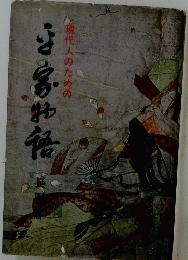 現代人のための
平家物語